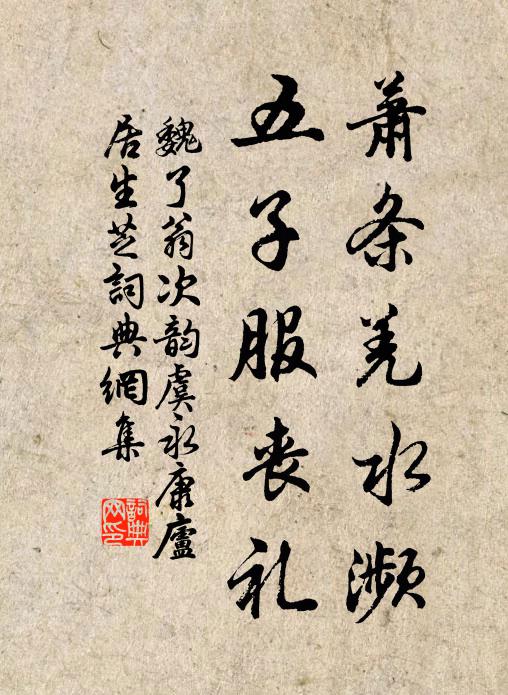 蕭条羌水濒
五子服丧礼
魏了翁次韵虞永康廬
居生芝詞典網集
詞典网印